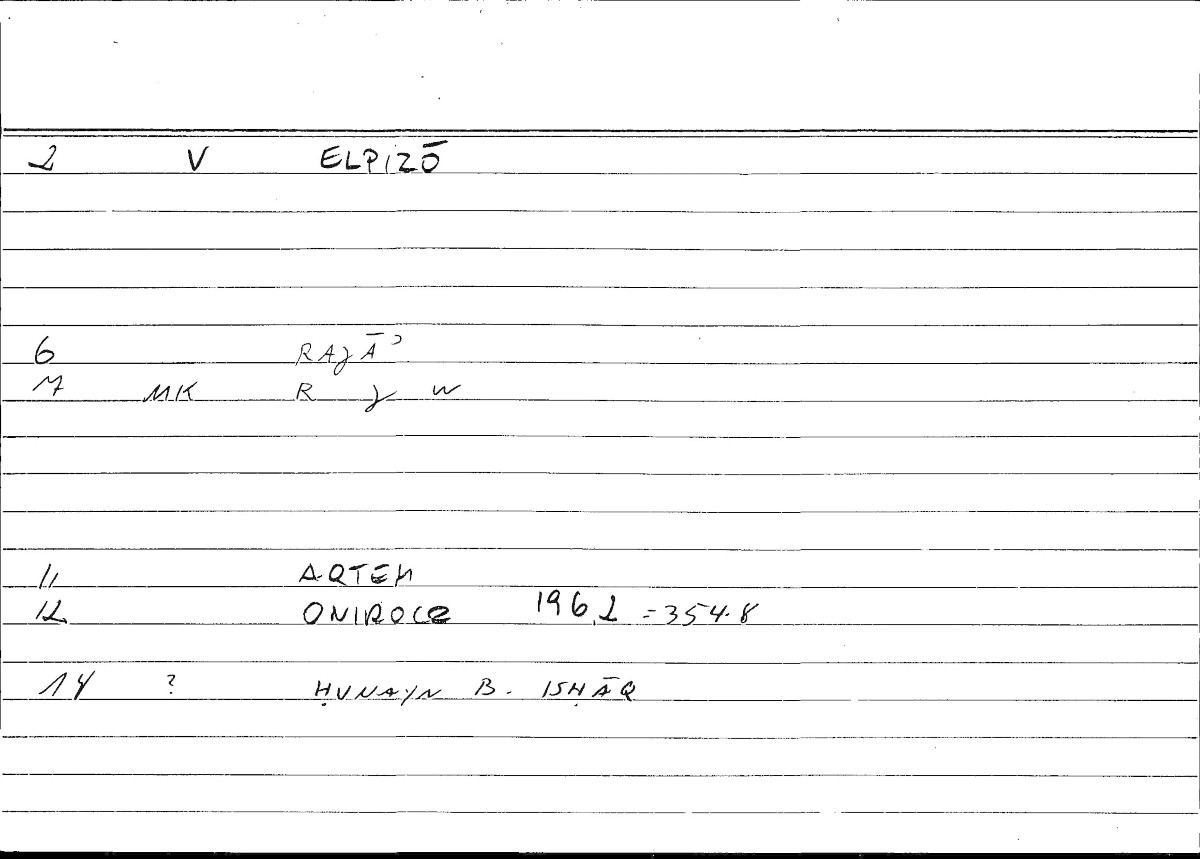 2 V ELPIZŌ
6 RAJĀʾ
7 MK R J W
11 ARTEM
12 ONIROCR 196,2 = 354.8
14 ? ḤUNAYN B. ISḤĀQ